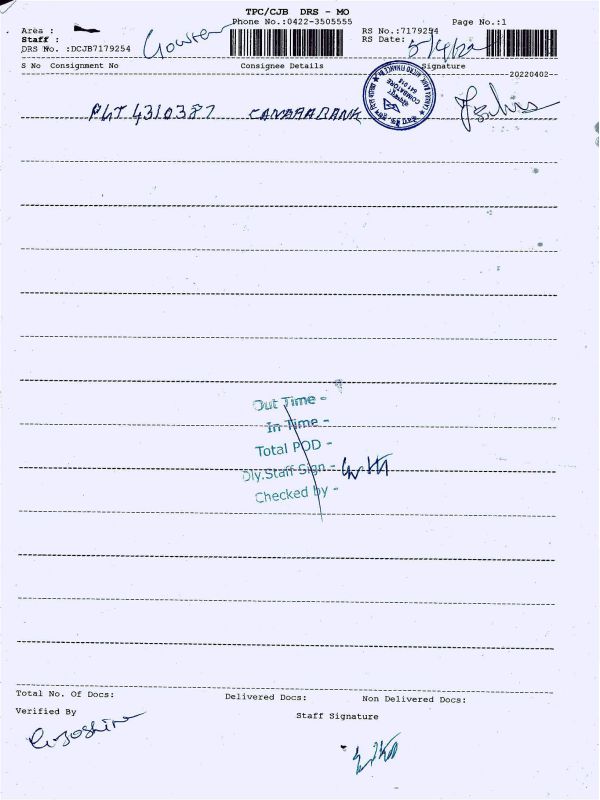 TPC/CJB DRS - MO
Phone No.:0422-3505555
Page No.:1
Area :
Staff :
DRS No. :DCJB7179254
RS No.:7179254
RS Date: 5/4/22
S No Consignment No Consignee Details Signature
--20220402--
PLT 4310387 CANARA BANK
COIMBATORE
641 018
Out Time -
In Time -
Total POD -
Dly.Staff Sign -
Checked by -
Total No. Of Docs: Delivered Docs: Non Delivered Docs:
Verified By
Staff Signature